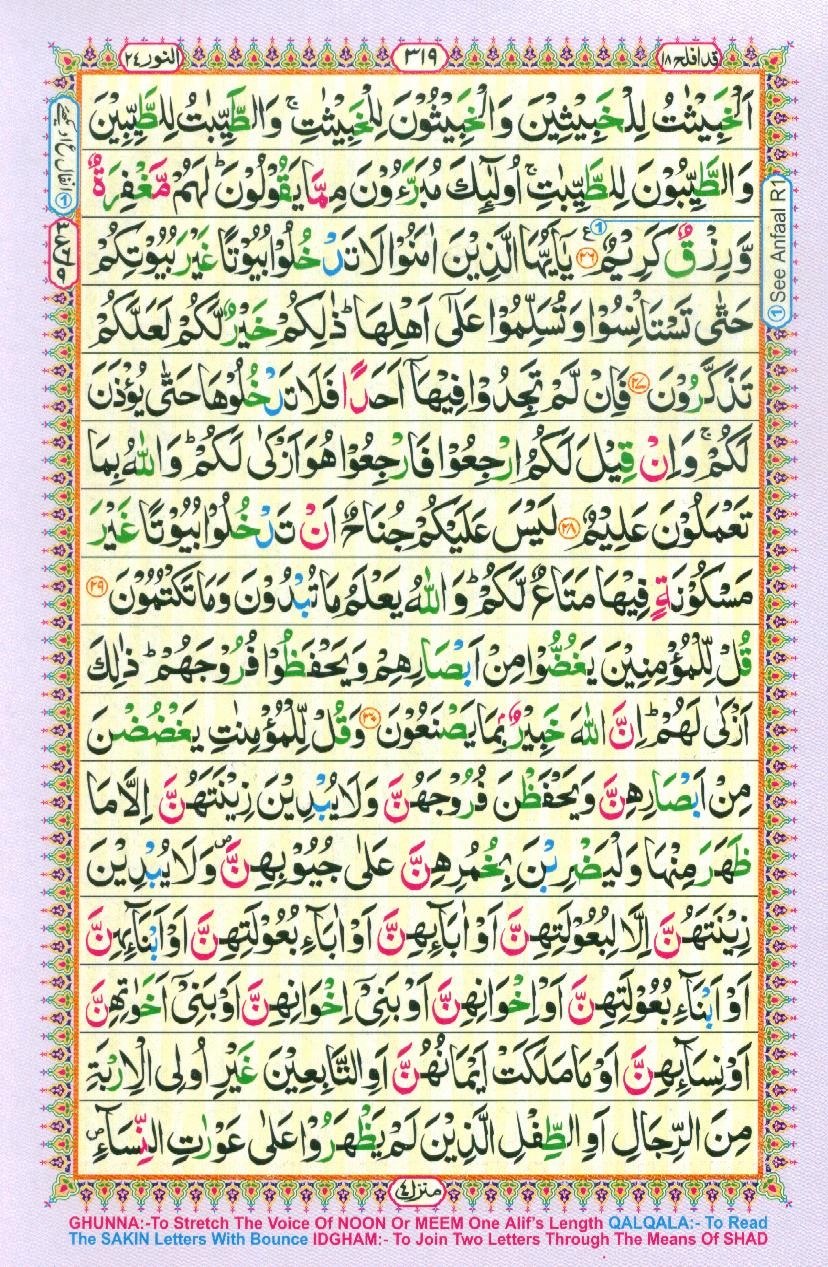 قد افلح ١٨
٣١٩
النور ٢٤
اَلْخَبِيْثٰتُ لِلْخَبِيْثِيْنَ وَالْخَبِيْثُوْنَ لِلْخَبِيْثٰتِ ۚ وَالطَّيِّبٰتُ لِلطَّيِّبِيْنَ
وَالطَّيِّبُوْنَ لِلطَّيِّبٰتِ ۚ اُولٰٓئِكَ مُبَرَّءُوْنَ مِمَّا يَقُوْلُوْنَ ؕ لَهُمْ مَّغْفِرَةٌ
وَّرِزْقٌ كَرِيْمٌ ۟ ٢٦ ع يٰۤاَيُّهَا الَّذِيْنَ اٰمَنُوْا لَا تَدْخُلُوْا بُيُوْتًا غَيْرَ بُيُوْتِكُمْ
حَتّٰى تَسْتَاْنِسُوْا وَتُسَلِّمُوْا عَلٰۤى اَهْلِهَا ؕ ذٰلِكُمْ خَيْرٌ لَّكُمْ لَعَلَّكُمْ
تَذَكَّرُوْنَ ٢٧ فَاِنْ لَّمْ تَجِدُوْا فِيْهَاۤ اَحَدًا فَلَا تَدْخُلُوْهَا حَتّٰى يُؤْذَنَ
لَكُمْ ۚ وَاِنْ قِيْلَ لَكُمُ ارْجِعُوْا فَارْجِعُوْا هُوَ اَزْكٰى لَكُمْ ؕ وَاللّٰهُ بِمَا
تَعْمَلُوْنَ عَلِيْمٌ ٢٨ لَيْسَ عَلَيْكُمْ جُنَاحٌ اَنْ تَدْخُلُوْا بُيُوْتًا غَيْرَ
مَسْكُوْنَةٍ فِيْهَا مَتَاعٌ لَّكُمْ ؕ وَاللّٰهُ يَعْلَمُ مَا تُبْدُوْنَ وَمَا تَكْتُمُوْنَ ٢٩
قُلْ لِّلْمُؤْمِنِيْنَ يَغُضُّوْا مِنْ اَبْصَارِهِمْ وَيَحْفَظُوْا فُرُوْجَهُمْ ؕ ذٰلِكَ
اَزْكٰى لَهُمْ ؕ اِنَّ اللّٰهَ خَبِيْرٌۢ بِمَا يَصْنَعُوْنَ ٣٠ وَقُلْ لِّلْمُؤْمِنٰتِ يَغْضُضْنَ
مِنْ اَبْصَارِهِنَّ وَيَحْفَظْنَ فُرُوْجَهُنَّ وَلَا يُبْدِيْنَ زِيْنَتَهُنَّ اِلَّا مَا
ظَهَرَ مِنْهَا وَلْيَضْرِبْنَ بِخُمُرِهِنَّ عَلٰى جُيُوْبِهِنَّ ۪ وَلَا يُبْدِيْنَ
زِيْنَتَهُنَّ اِلَّا لِبُعُوْلَتِهِنَّ اَوْ اٰبَآئِهِنَّ اَوْ اٰبَآءِ بُعُوْلَتِهِنَّ اَوْ اَبْنَآئِهِنَّ
اَوْ اَبْنَآءِ بُعُوْلَتِهِنَّ اَوْ اِخْوَانِهِنَّ اَوْ بَنِيْۤ اِخْوَانِهِنَّ اَوْ بَنِيْۤ اَخَوٰتِهِنَّ
اَوْ نِسَآئِهِنَّ اَوْ مَا مَلَكَتْ اَيْمَانُهُنَّ اَوِ التّٰبِعِيْنَ غَيْرِ اُولِي الْاِرْبَةِ
مِنَ الرِّجَالِ اَوِ الطِّفْلِ الَّذِيْنَ لَمْ يَظْهَرُوْا عَلٰى عَوْرٰتِ النِّسَآءِ ۪
① See Anfaal R1
منزل ٤
GHUNNA:-To Stretch The Voice Of NOON Or MEEM One Alif's Length QALQALA:- To Read
The SAKIN Letters With Bounce IDGHAM:- To Join Two Letters Through The Means Of SHAD